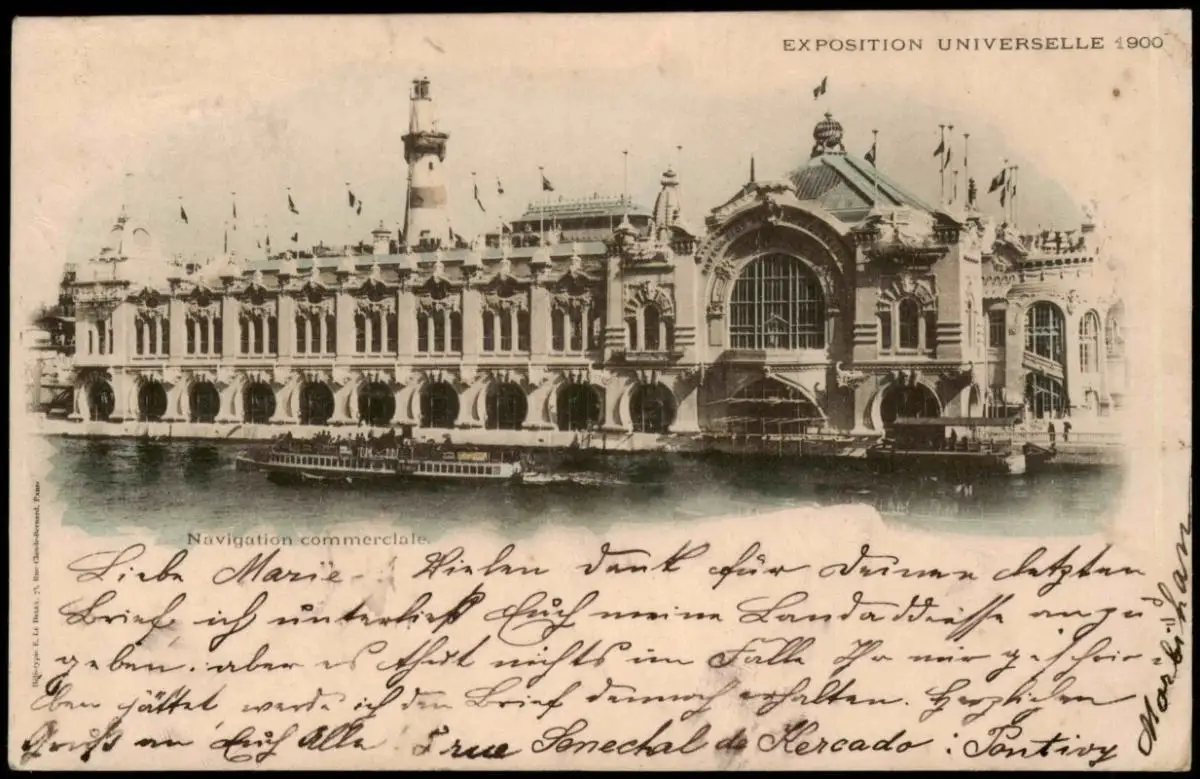 EXPOSITION UNIVERSELLE 1900
Navigation commerciale.
Liebe Marie! Vielen Dank für Deinen letzten
Brief ich unterließ Euch meine Landaddresse anzu
geben. aber es thut nichts im Falle Ihr mir geschrie-
ben hättet werde ich den Brief dennoch erhalten. Herzlichen
Gruß an Euch Alle! rue Senechal de Kercado: Pontivy
Morbihan
E. Le Deley, 75, Rue Claude-Bernard, Paris